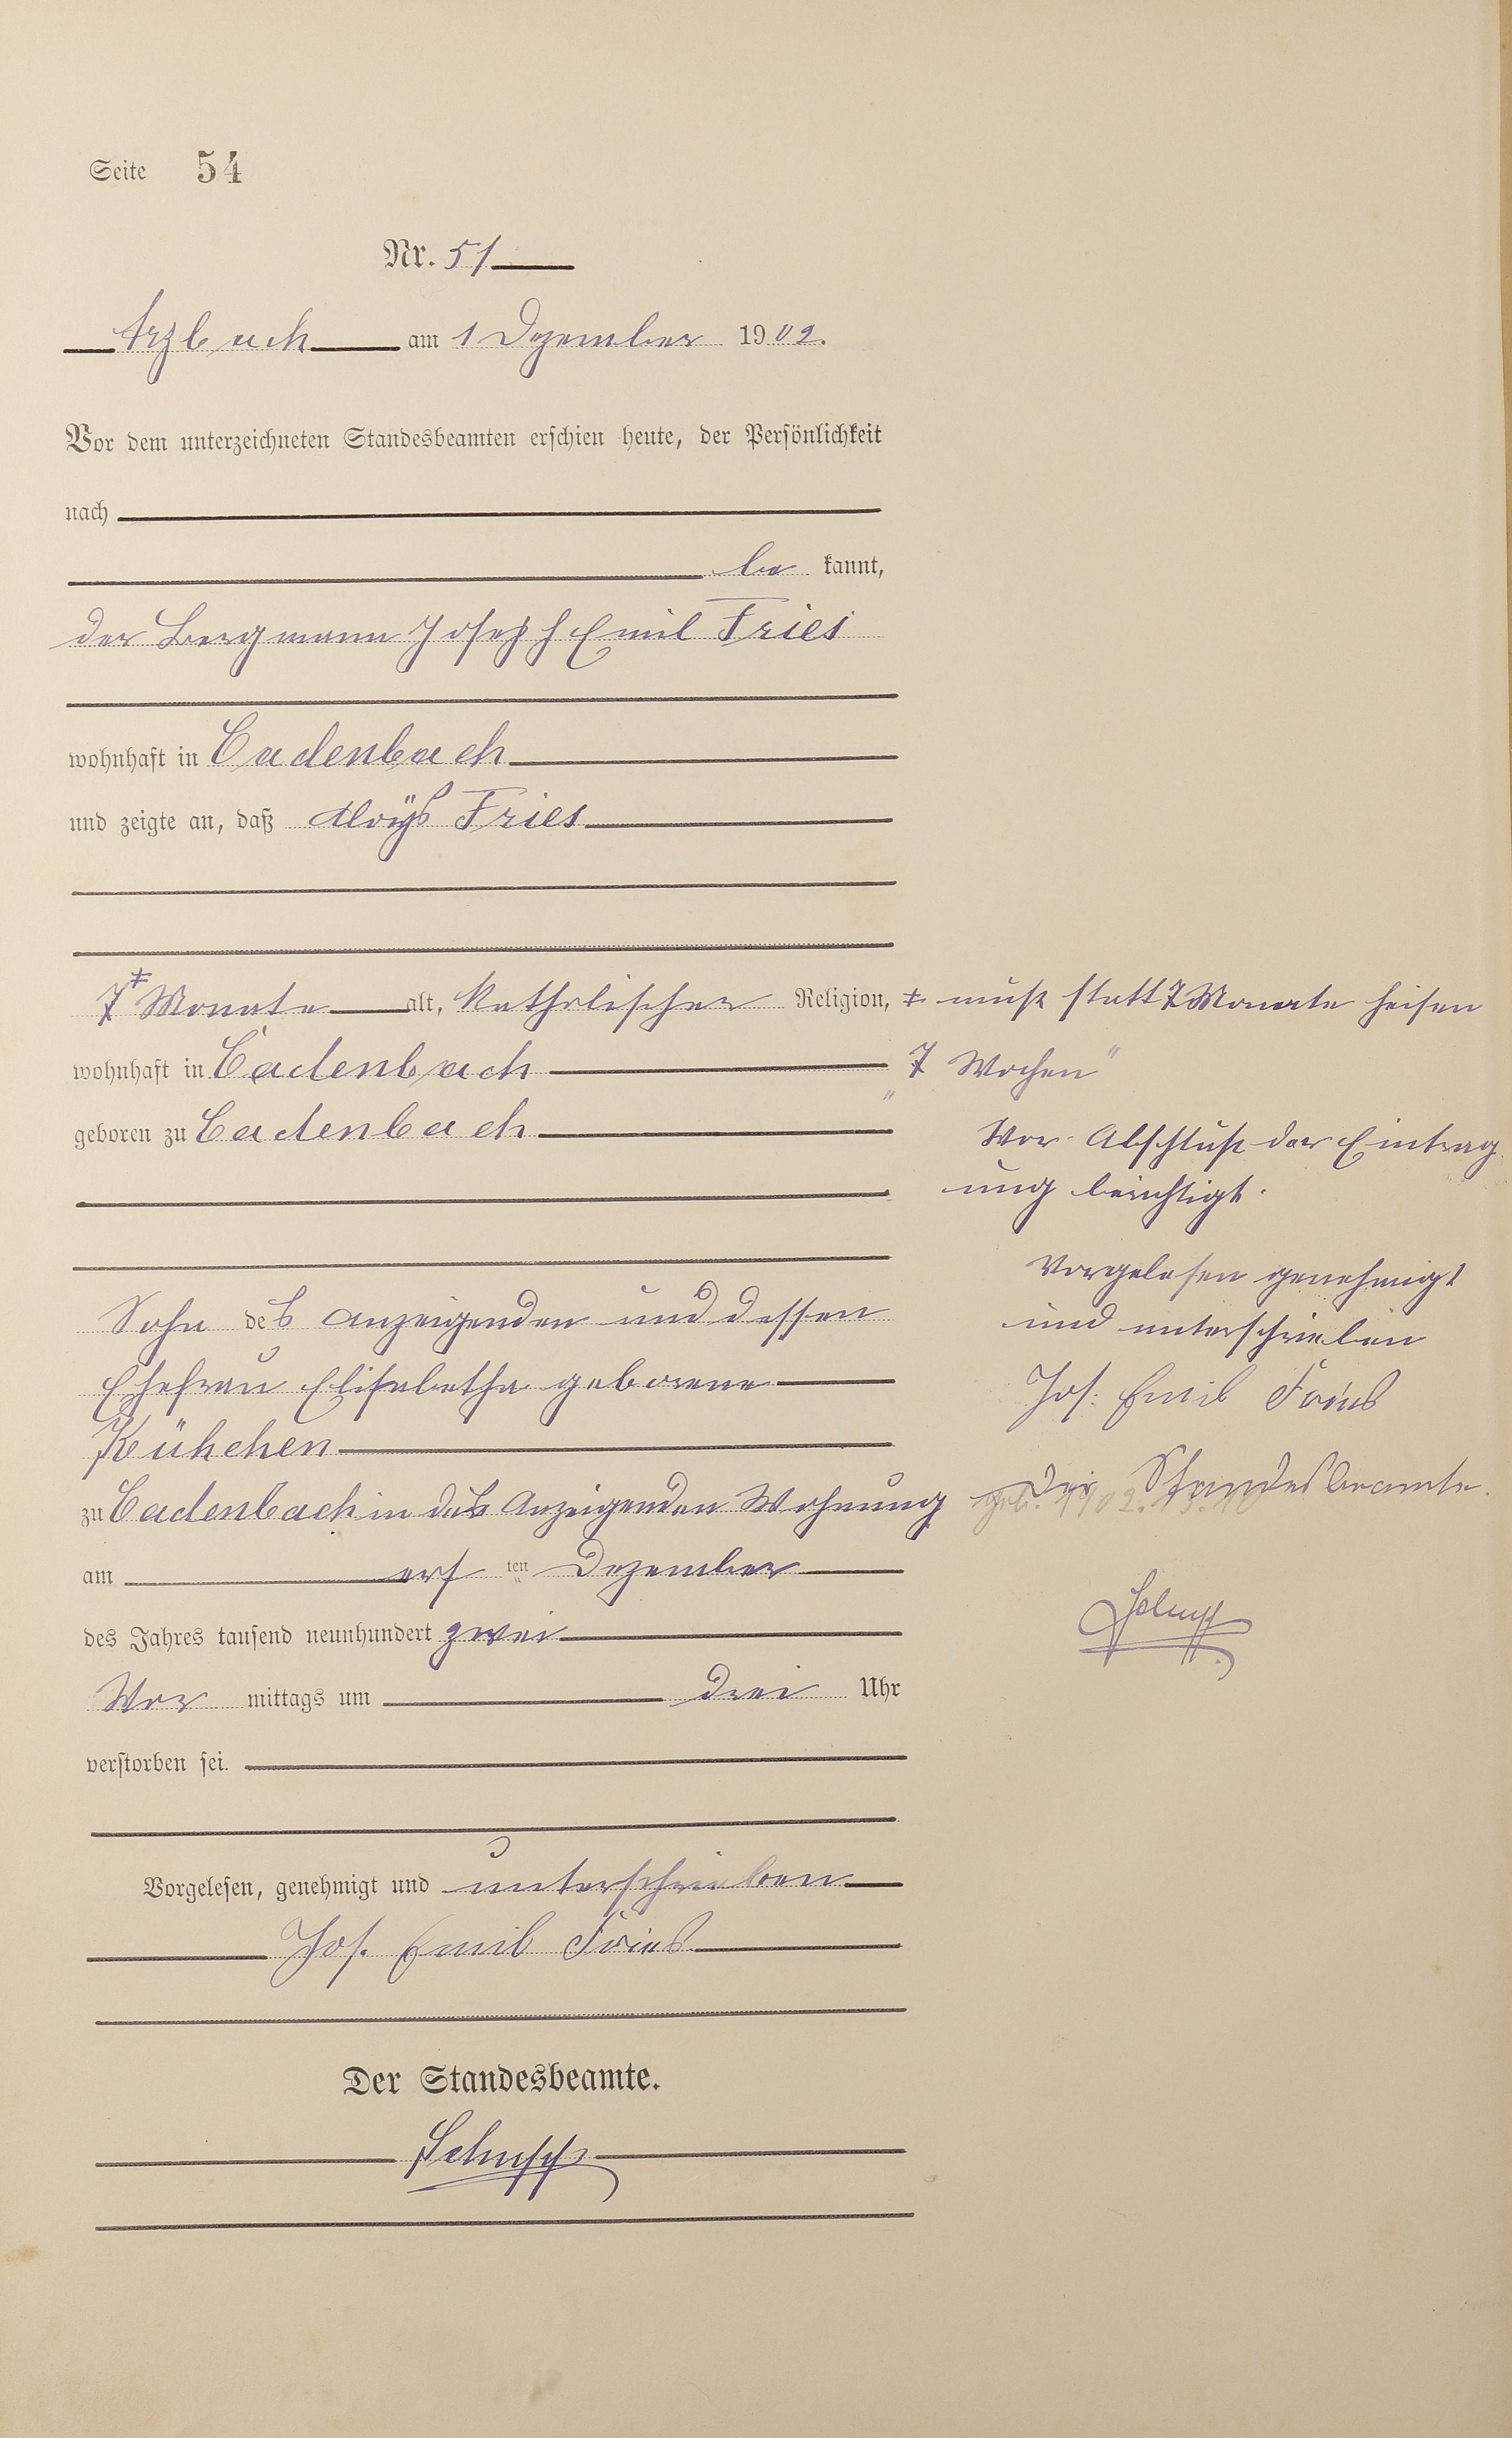 Seite 54
Nr. 51
Arzbach am 1 Dezember 1902.
Vor dem unterzeichneten Standesbeamten erschien heute, der Persönlichkeit
nach
be kannt,
der Bergmann Joseph Emil Fries
wohnhaft in Cadenbach
und zeigte an, daß Aloÿs Fries
7 ‡ Monate alt, katholischer Religion,
wohnhaft in Cadenbach
geboren zu Cadenbach
Sohn des Anzeigenden und dessen
Ehefrau Elisabetha geborene
Kühchen
zu Cadenbach in des Anzeigenden Wohnung
am ersten Dezember
des Jahres tausend neunhundert zwei
Vor mittags um drei Uhr
verstorben sei.
Vorgelesen, genehmigt und unterschrieben
Jos. Emil Fries
Der Standesbeamte.
‡ muß statt 7 Monate heisen
„ 7 Wochen"
Vor Abschluß der Eintrag
ung berichtigt.
Vorgelesen genehmigt
und unterschrieben
Jos. Emil Fries
Der Standesbeamte.